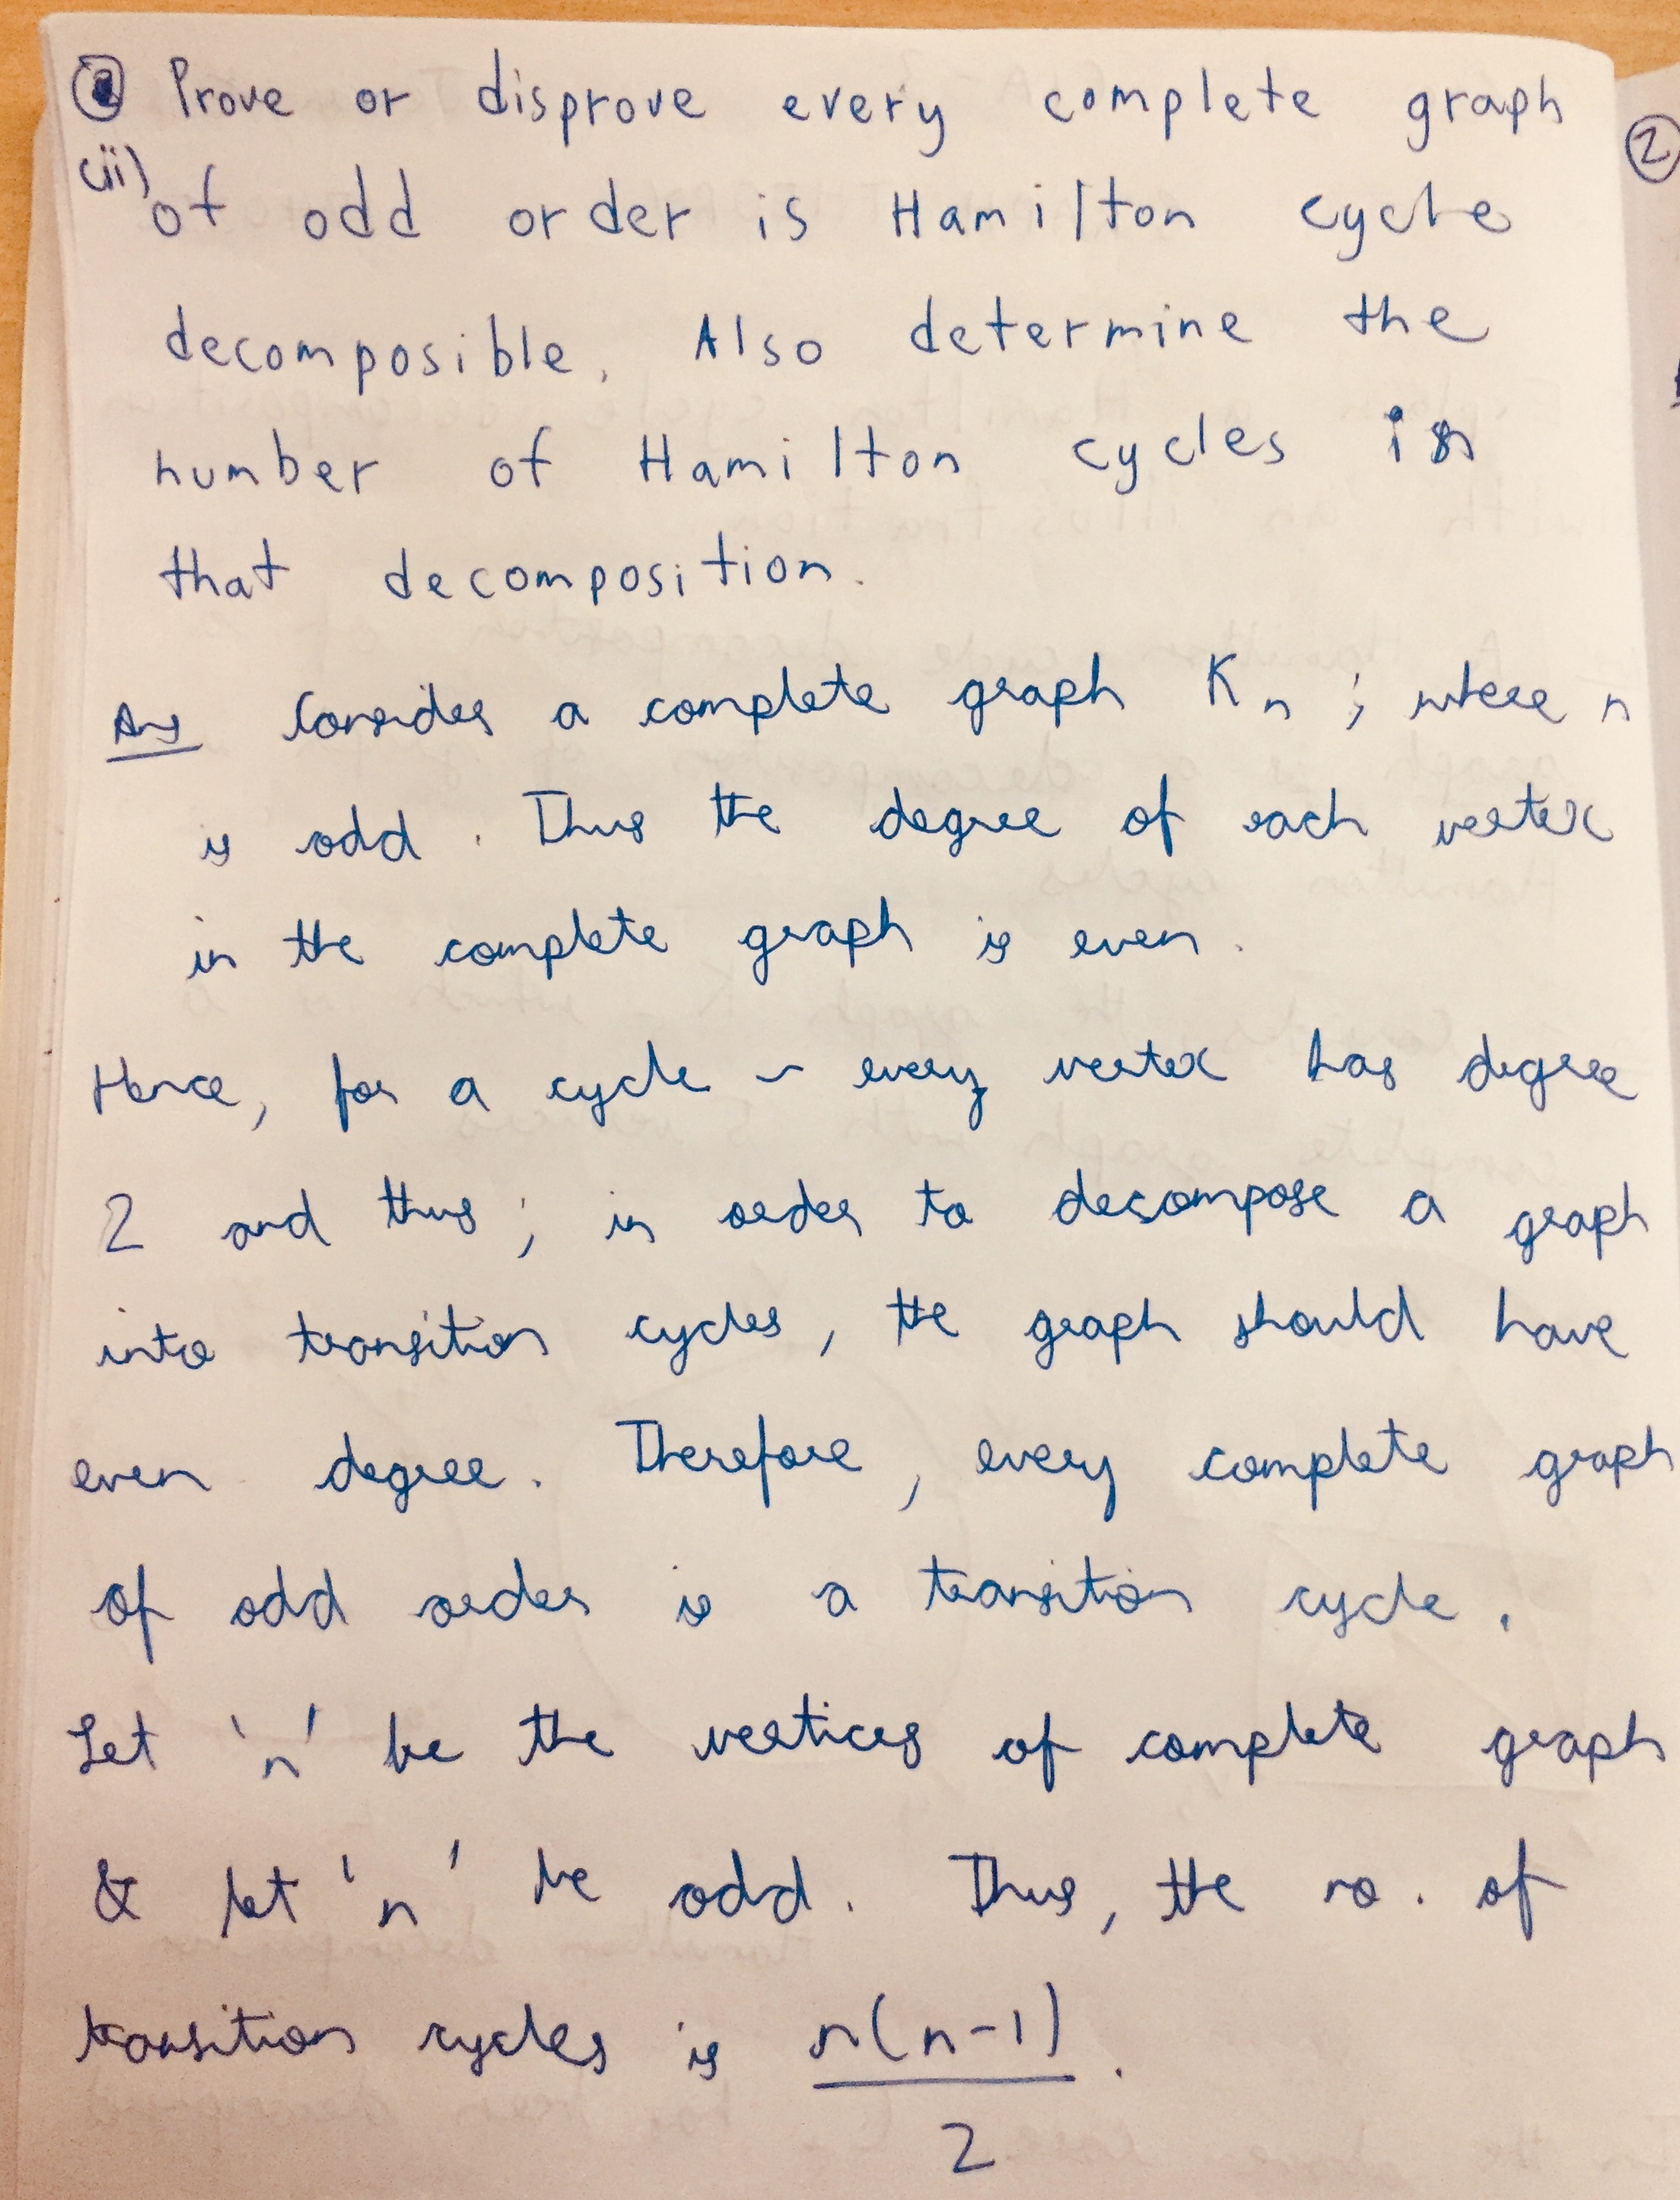 ② Prove or disprove every complete graph
(ii) of odd order is Hamilton cycle
decomposible. Also determine the
number of Hamilton cycles in
that decomposition.
Ans Consider a complete graph Kn ; where n
is odd. Thus the degree of each vertex
in the complete graph is even.
Hence, for a cycle - every vertex has degree
2 and thus ; in order to decompose a graph
into transition cycles, the graph should have
even degree. Therefore, every complete graph
of odd order is a transition cycle.
Let 'n' be the vertices of complete graph
& let 'n' be odd. Thus, the no. of
transition cycles is n(n-1)
2
②